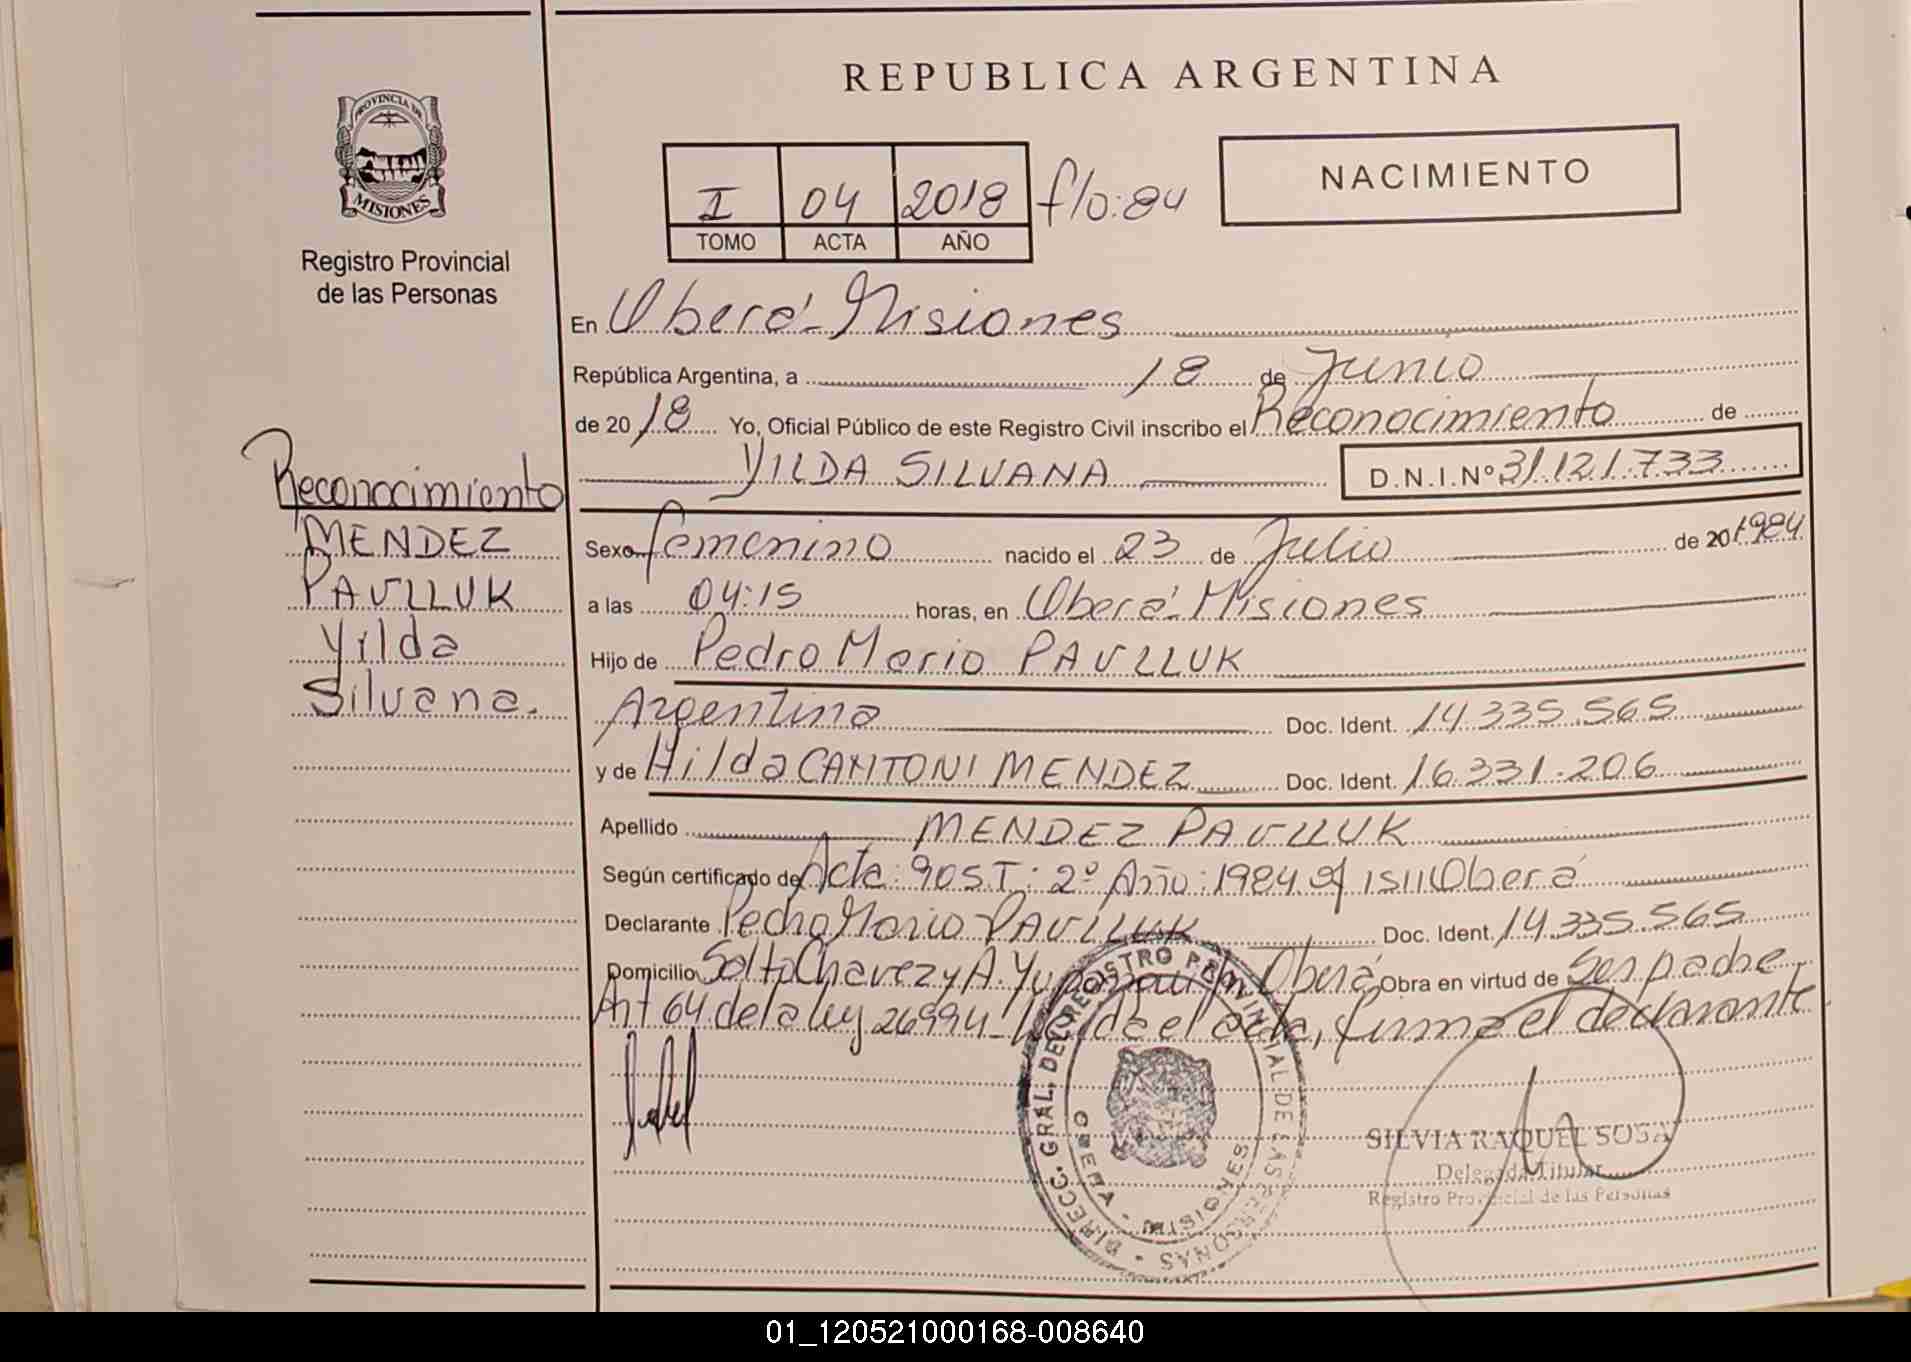 REPUBLICA ARGENTINA
PROVINCIA DE
MISIONES
Registro Provincial
de las Personas
I 04 2018 f/o: 84
TOMO ACTA AÑO
NACIMIENTO
En Oberá - Misiones
República Argentina, a 18 de Junio
de 2018 Yo, Oficial Público de este Registro Civil inscribo el Reconocimiento de
YILDA SILVANA D.N.I.Nº 31.121.733
Reconocimiento
MENDEZ
PAULLUK
Yilda
Silvana.
Sexo femenino nacido el 23 de Julio de 20 1984
a las 04:15 horas, en Oberá - Misiones
Hijo de Pedro Mario PAULLUK
Argentina Doc. Ident. 14.335.565
y de Hilda CANTONI MENDEZ Doc. Ident. 16.331.206
Apellido MENDEZ PAULLUK
Según certificado de Acta: 905 T: 2º Año: 1984 Of 1511 Oberá
Declarante Pedro Mario PAULLUK Doc. Ident. 14.335.565
Domicilio Solto Chavez y A. Oberá Obra en virtud de Ser padre
Art 64 de la ley 26994 - Leída el acta, firma el declarante
DIRECC. GRAL. DEL REGISTRO PROVINCIAL DE LAS PERSONAS
OBERA - MISIONES
SILVIA RAQUEL SOSA
Delegada Titular
Registro Provincial de las Personas
01_120521000168-008640